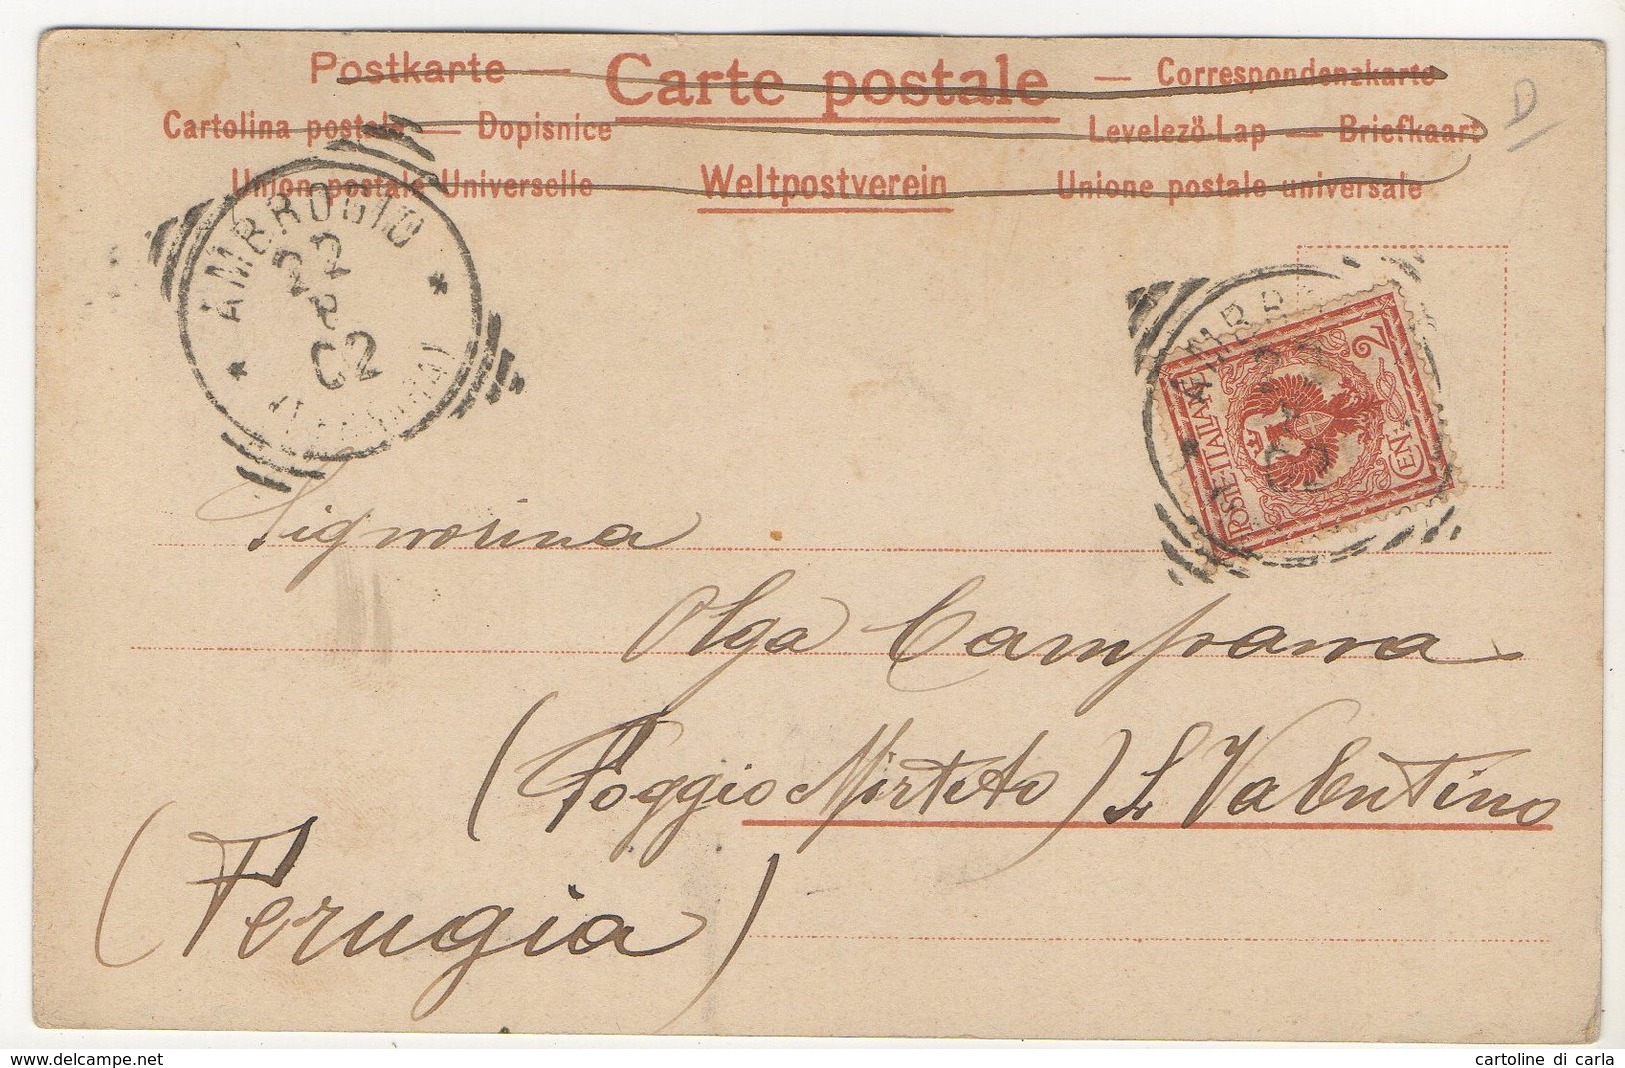 Postkarte — Carte postale — Correspondenzkarte
Cartolina postale — Dopisnice Levelezö-Lap — Briefkaart
Union postale Universelle Weltpostverein Unione postale universale
D
AMBROGIO
22
8
02
POSTE ITALIANE
CEN. 2
AMBR
02
Signorina
Olga Campana
(Poggio Mirteto) S. Valentino
(Perugia)
www.delcampe.net
cartoline di carla